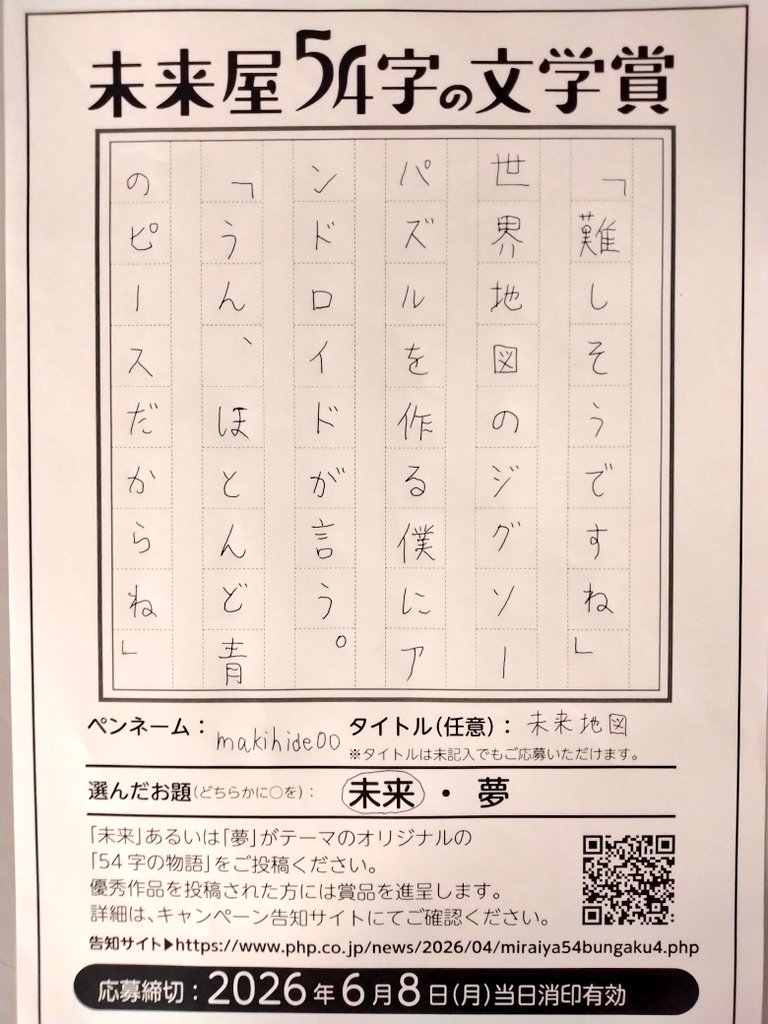 未来屋54字の文学賞
「難しそうですね」
世界地図のジグソー
パズルを作る僕にア
ンドロイドが言う。
「うん、ほとんど青
のピースだからね」
ペンネーム： makihide00 タイトル(任意)： 未来地図
※タイトルは未記入でもご応募いただけます。
選んだお題(どちらかに○を)： 未来・夢
「未来」あるいは「夢」がテーマのオリジナルの
「54字の物語」をご投稿ください。
優秀作品を投稿された方には賞品を進呈します。
詳細は、キャンペーン告知サイトにてご確認ください。
告知サイト▶https://www.php.co.jp/news/2026/04/miraiya54bungaku4.php
応募締切：2026年6月8日(月)当日消印有効